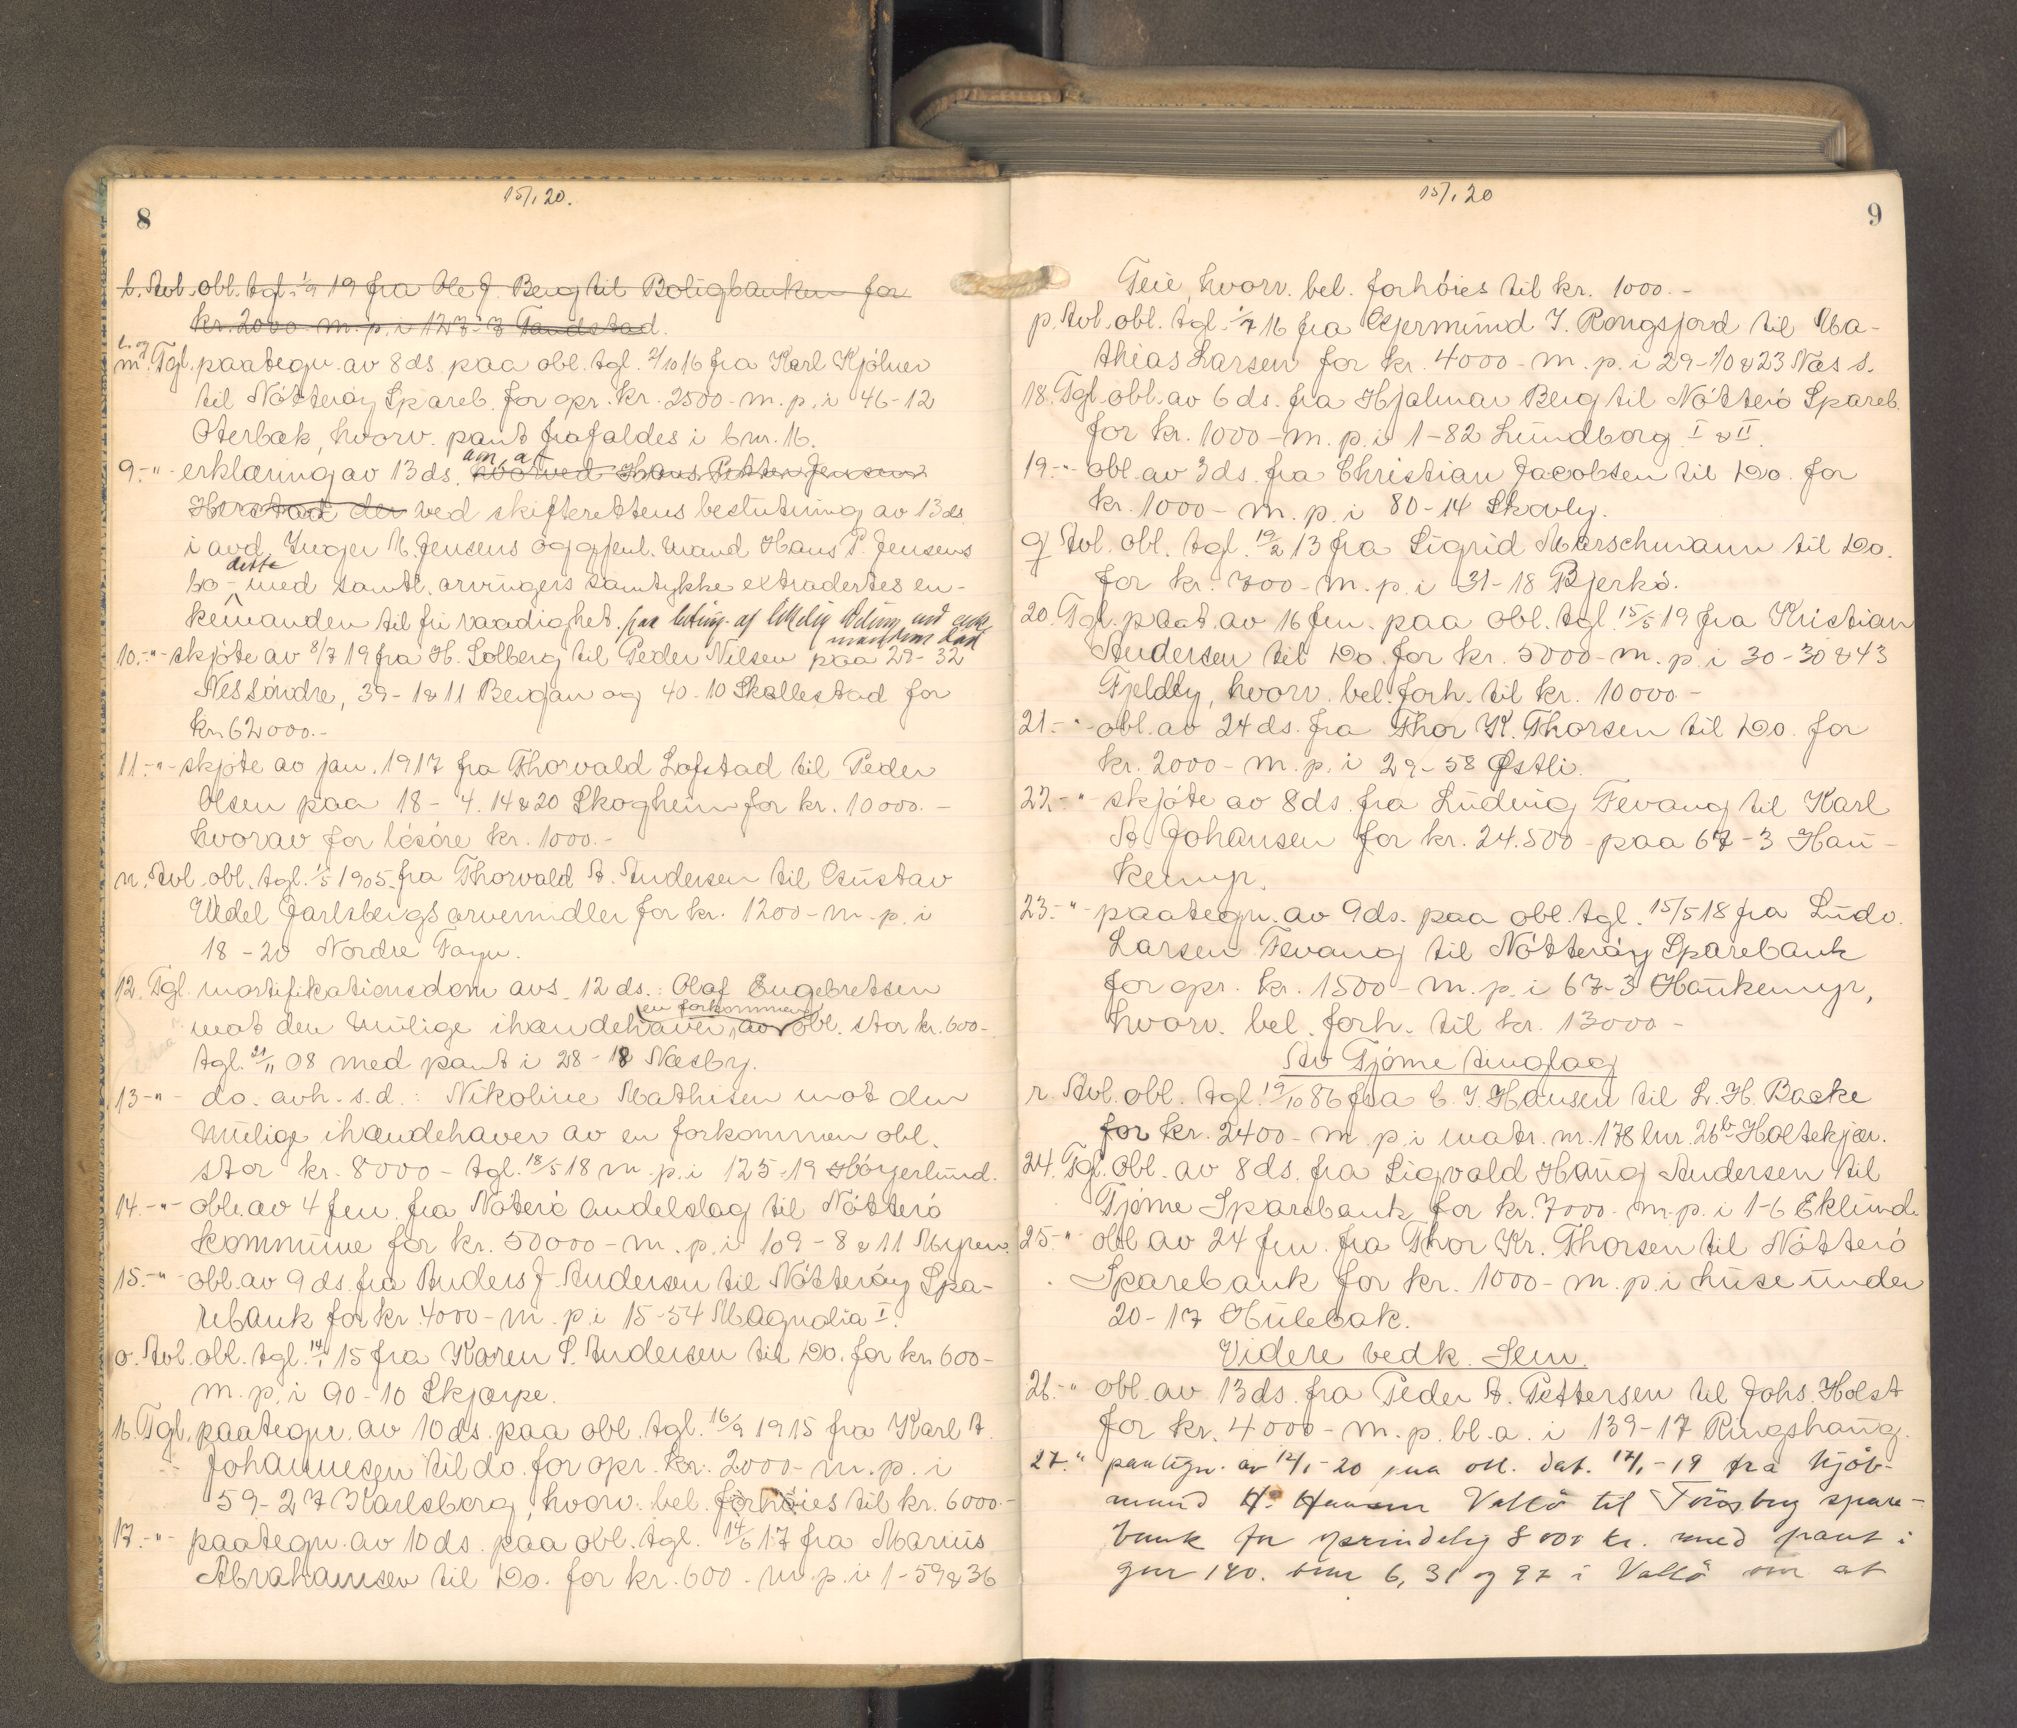 15/1 20.
8
l. Avl. obl. tgl. 1/9 19 fra Ole J. Berg til Boligbanken for
kr. 2000 m. p. i 127-3 Tandstad.
l. og
m. Tgl. paategn. av 8 ds. paa obl. tgl. 2/10 16 fra Karl Kjölner
til Nötteröy Spareb. for opr. kr. 2500 - m. p. i 46-12
Oterbæk, hvorv. pant frafaldes i bnr. 16.
9.-"- erklæring av 13 ds. om, at hvorved Hans Petter Jensen
Herstad der ved skifterettens beslutning av 13 ds.
i avd. Inger M. Jensens og gjenl. mand Hans P. Jensens
bo - dette med samtl. arvingers samtykke extradertes en-
kemanden til fri raadighet
10.-"- skjöte av 8/7 19 fra H. Solberg til Peder Nilsen paa 29-32
Nes söndre, 39-1 & 11 Bergan og 40-10 Skallestad for
kr. 62000.-
11.-"- skjöte av jan. 1917 fra Thorvald Lofstad til Peder
Olsen paa 18 - 4. 14 & 20 Skogheim for kr. 10000.-
hvorav for lösöre kr. 1000.-
n. Avl. obl. tgl. 1/5 1905 fra Thorvald A. Andersen til Gustav
Wedel Jarlsbergs arvemidler for kr. 1200 - m. p. i
18 - 20 Nordre Fayn.
12. Tgl. mortifikationsdom avs. 12 ds.: Olaf Engebretsen
mot den mulige ihændehaver av en forkommen obl. stor kr. 600-
tgl. 21/11 08 med pant i 28-18 Næsby.
13-"- do. avh. s.d.: Nikoline Mathisen mot den
mulige ihændehaver av en forkommen obl.
stor kr. 8000 - tgl. 18/5 18 m. p. i 125-19 Höyerlund.
14.-"- obl. av 4 fm. fra Nöterö andelslag til Nötterö
kommune for kr. 50000 - m. p. i 109 - 8 & 11 Myren.
15.-"- obl. av 9 ds. fra Anders J. Andersen til Nötteröy Spa-
rebank for kr. 4000 - m. p. i 15-54 Magnolia I.
o. Avl. obl. tgl. 14/1 15 fra Karen S. Andersen til Do. for kr. 600-
m. p. i 90-10 Skjærpe.
16. Tgl. paategn. av 10 ds. paa obl. tgl. 16/9 1915 fra Karl A.
Johannesen til do. for opr. kr. 2000 - m. p. i
59-27 Karlsberg, hvorv. bel. forhöies til kr. 6000.-
17.-"- paategn. av 10 ds. paa obl. tgl. 14/6 17 fra Marius
Abrahamsen til Do. for kr. 600 - m. p. i 1-59 & 36
15/1 20
9
Teie, hvorv. bel. forhöies til kr. 1000.-
p. Avl. obl. tgl. 1/7 16 fra Gjermund J. Rongsjord til Ma-
thias Larsen for kr. 4000 - m. p. i 29-10 & 23 Næs s.
18. Tgl. obl. av 6 ds. fra Hjalmar Berg til Nötterö Spareb.
for kr. 1000 - m. p. i 1-82 Lundborg I & II.
19.-"- obl. av 3 ds. fra Christian Jacobsen til Do. for
kr. 1000 - m. p. i 80-14 Skovly.
q Avl. obl. tgl. 19/2 13 fra Sigrid Marschmann til Do.
for kr. 700 - m. p. i 31-18 Bjerkö.
20. Tgl. paat. av 16 fm. paa obl. tgl. 15/5 19 fra Kristian
Andersen til Do. for kr. 5000 - m. p. i 30-30 & 43
Fjeldly, hvorv. bel. forh. til kr. 10000 -
21.-"- obl. av 24 ds. fra Thor K. Thorsen til Do. for
kr. 2000 - m. p. i 29-58 Østli.
22.-"- skjöte av 8 ds. fra Ludvig Fevang til Karl
A. Johansen for kr. 24.500 - paa 67-3 Hau-
kemyr.
23.-"- paategn. av 9 ds. paa obl. tgl. 15/5 18 fra Ludv.
Larsen Fevang til Nötteröy Sparebank
for opr. kr. 1500 - m. p. i 67-3 Haukemyr,
hvorv. bel. forh. til kr. 13000 -
Av Tjöme tinglag
r. Avl. obl. tgl. 19/10 86 fra C. J. Hansen til L. H. Backe
for kr. 2400 - m. p. i matr. nr. 178 lnr. 26b Holtekjær.
24. Tgl. obl. av 8 ds. fra Sigvald Haug Andersen til
Tjöme Sparebank for kr. 7000 - m. p. i 1-6 Eklund.
25.-"- obl. av 24 fm. fra Thor Kr. Thorsen til Nötterö
Sparebank for kr. 1000 - m. p. i huse under
20-17 Hulebak.
Videre vedk. Sem.
26.-"- obl. av 13 ds. fra Peder A. Pettersen til Johs. Holst
for kr. 4000 - m. p. bl. a. i 139-17 Ringshaug.
27.-"- paategn. av 12/1 - 20 paa obl. dat. 17/1 - 19 fra kjöb-
mand H. Hansen Vallö til Tönsberg spare-
bank for oprindelig 8000 kr. med pant i
gnr 140. bnr 6, 31 og 97 i Vallö om at